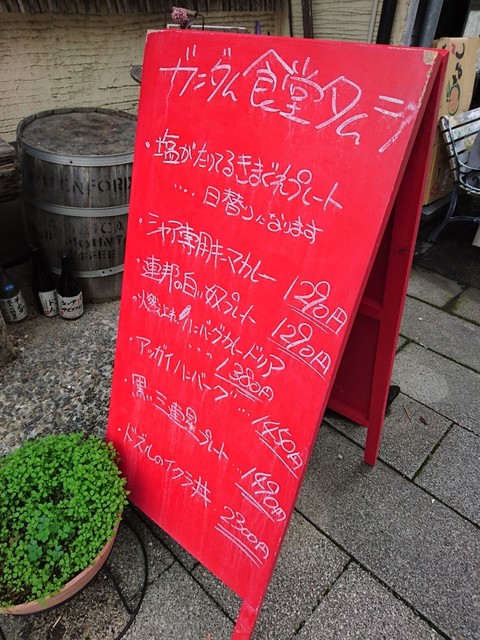 ガンダム食堂タムラ
・塩がたりてるきまぐれプレート
‥‥日替りになります
・シャア専用キーマカレー 1290円
・連邦の白い奴プレート 1290円
・火燃え上れ!ハンバーグカレードリア
‥‥1380円
・アッガイハンバーグ‥‥1450円
・黒い三連星プレート‥‥1490円
・ドズルのイクラ丼 2300円
LENFORD